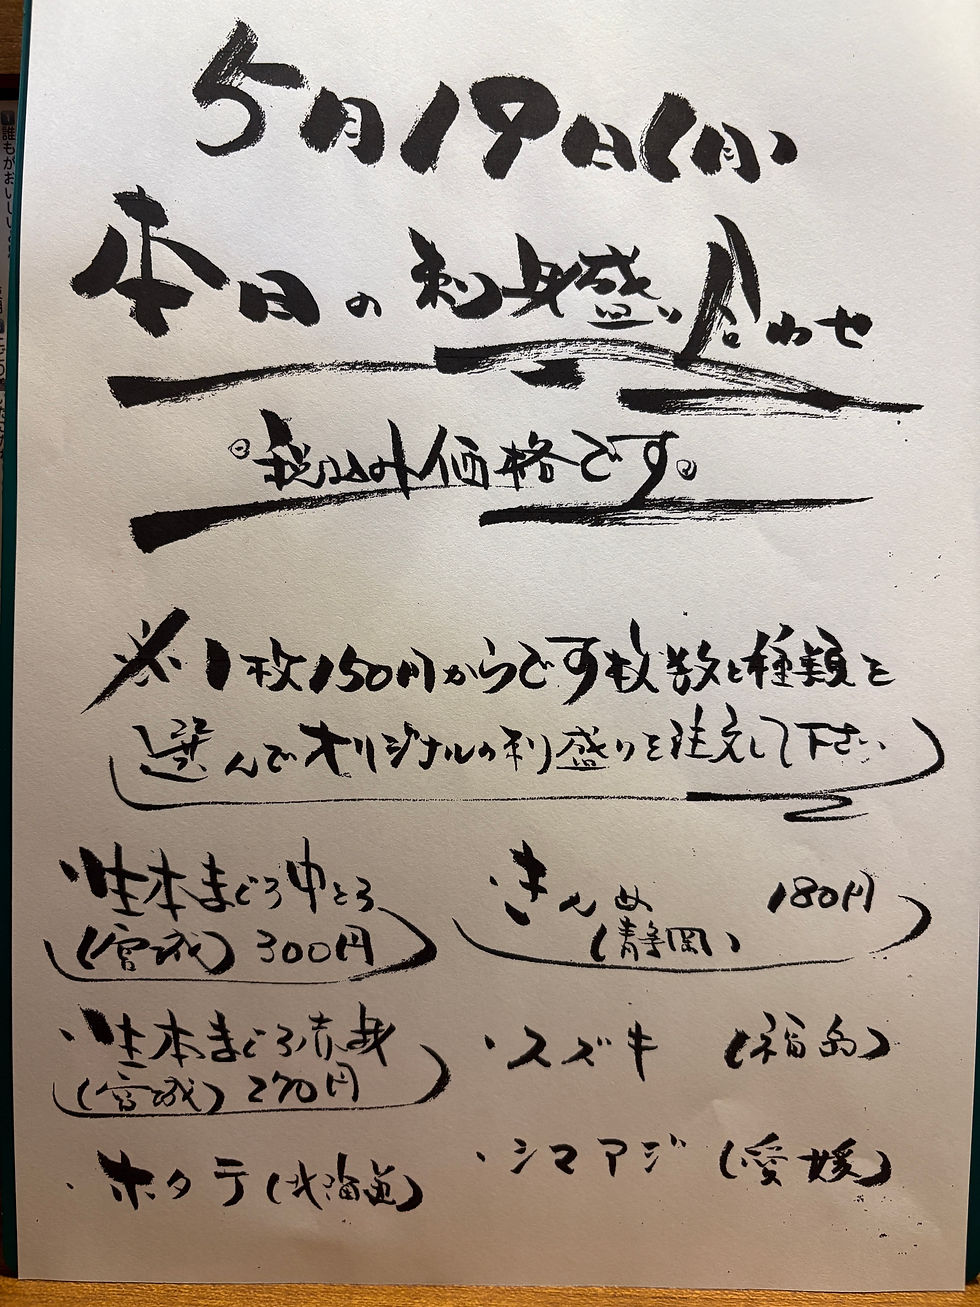 5月19日(月)
本日の刺身盛り合わせ
税込み価格です。
※1枚150円からです枚数と種類を
選んでオリジナルの刺盛りを注文して下さい
・生本まぐろ中とろ
(宮城) 300円
・生本まぐろ赤身
(宮城) 270円
・ホタテ(北海道)
・きんめ 180円
(静岡)
・スズキ (福島)
・シマアジ (愛媛)